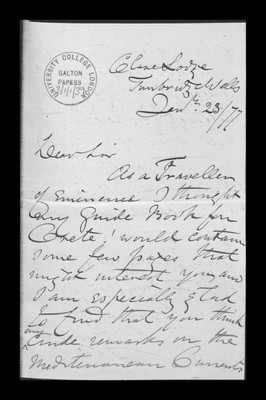 UNIVERSITY COLLEGE LONDON
GALTON
PAPERS
Clare Lodge
Tunbridge Wells
Jan 23/77
Dear Sir
As a Traveller
of Eminence I thought
my Guide Book for
Crete would contain
some few pages that
might interest you and
I am especially glad
to find that you think
my
Crude remarks on the
Mediterranean Currents